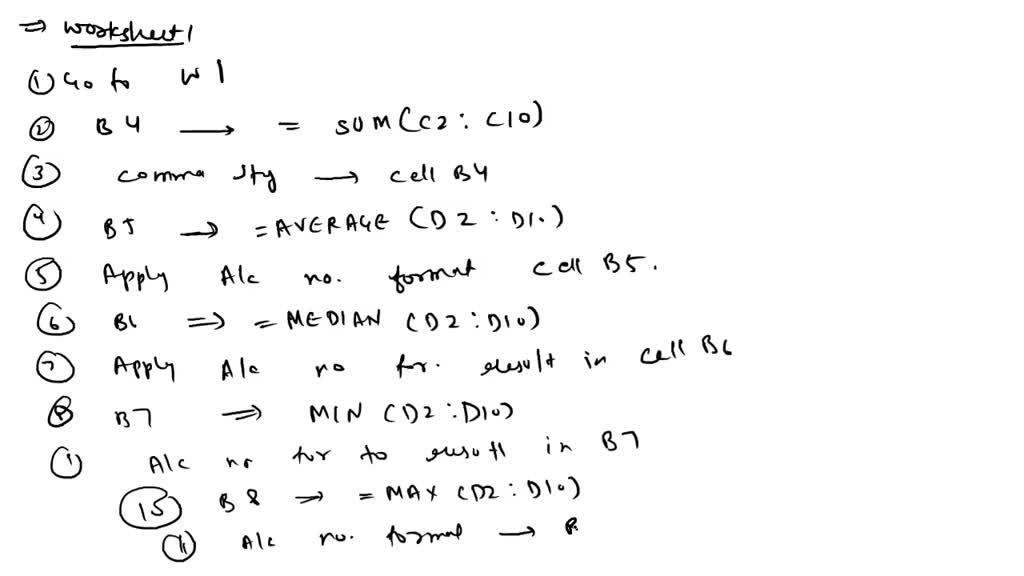 ⇒ Worksheet 1
① Go to W1
② B4 → = SUM(C2:C10)
③ comma sty → cell B4
④ B5 → =AVERAGE (D2:D10)
⑤ Apply A/c no. format cell B5.
⑥ B6 ⇒ = MEDIAN (D2:D10)
⑦ Apply A/c no for. result in cell B6
⑧ B7 ⇒ MIN (D2:D10)
A/c no for to result in B7
15 B8 → = MAX (D2:D10)
⑪ A/c no. format → B